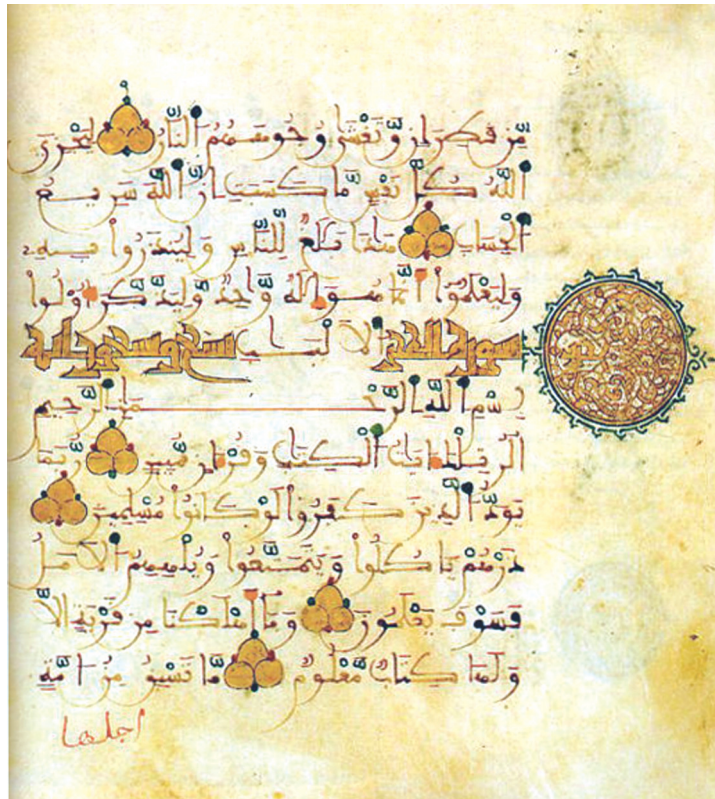 مِّن قَطِرَانٍ وَّتَغْشَىٰ وُجُوهَهُمُ النَّارُ لِيَجْزِيَ
اللَّهُ كُلَّ نَفْسٍ مَّا كَسَبَتْ إِنَّ اللَّهَ سَرِيعُ
الْحِسَابِ هَٰذَا بَلَٰغٌ لِّلنَّاسِ وَلِيُنذَرُوا بِهِ
وَلِيَعْلَمُوا أَنَّمَا هُوَ إِلَٰهٌ وَّاحِدٌ وَلِيَذَّكَّرَ أُولُوا
سورة الحجر الْأَلْبَٰبِ تسع وتسعون اية
بِسْمِ اللَّهِ الرَّحْمَٰنِ الرَّحِيمِ
الر تِلْكَ ءَايَٰتُ الْكِتَٰبِ وَقُرْءَانٍ مُّبِينٍ رُّبَمَا
يَوَدُّ الَّذِينَ كَفَرُوا لَوْ كَانُوا مُسْلِمِينَ
ذَرْهُمْ يَأْكُلُوا وَيَتَمَتَّعُوا وَيُلْهِهِمُ الْأَمَلُ
فَسَوْفَ يَعْلَمُونَ وَمَا أَهْلَكْنَا مِن قَرْيَةٍ إِلَّا
وَلَهَا كِتَابٌ مَّعْلُومٌ مَّا تَسْبِقُ مِنْ أُمَّةٍ
اجلها